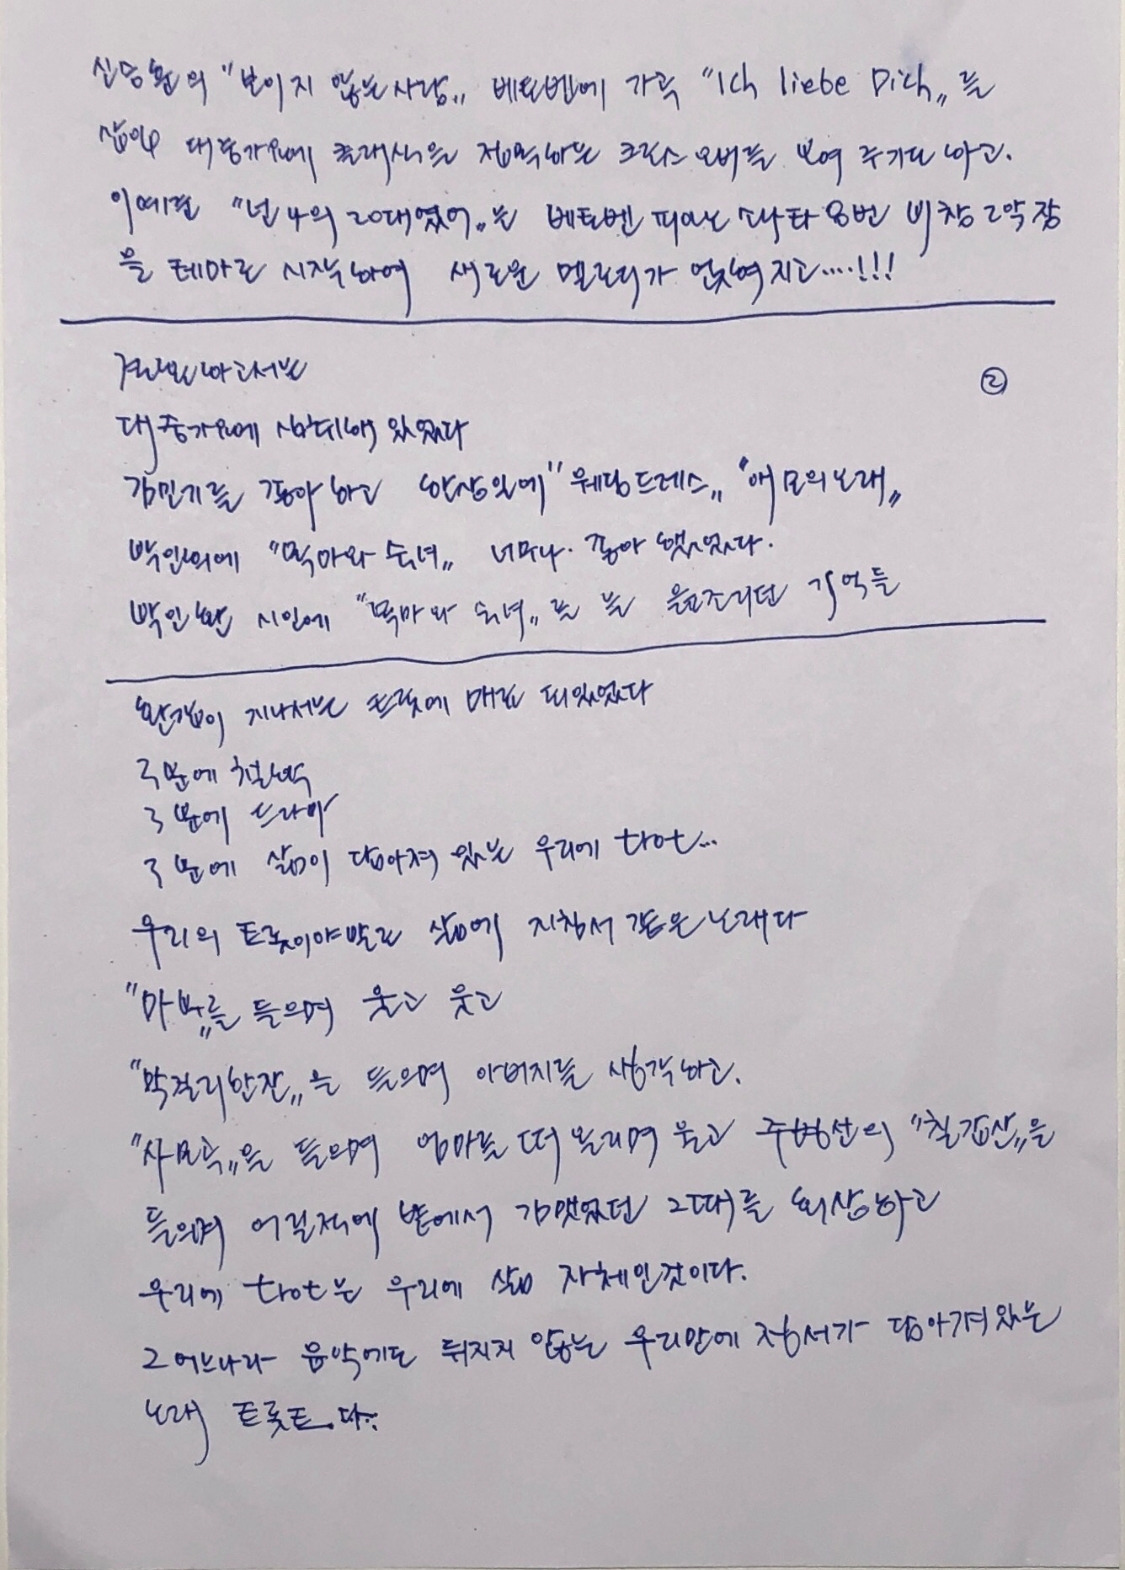 신승훈의 "보이지 않는사랑„ 베토벤에 가곡 "Ich liebe Dich„를
삽입 대중가요에 클래식을 접목하는 크로스 오버를 보여 주기도 하고.
이예린 "넌 나의 20대였어„는 베토벤 피아노 소나타 8번 비창 2악장
을 테마로 시작하여 새로운 멜로디가 얹혀지고....!!!
결혼하고서는
②
대중가요에 심취해 있었다
김민기를 좋아하고 한상일에 "웨딩드레스„ "애모의노래„
박인희에 "목마와 숙녀„ 너무나. 좋아 했었었다.
박인환 시인에 "목마와 숙녀„를 늘 읊조리던 기억들
환갑이 지나서는 트롯에 매료 되있었다
3분에 철학
3분에 드라마
3분에 삶이 담아져 있는 우리에 trot...
우리의 트롯이야말로 삶에 지침서 같은 노래다
"마부„를 들으며 웃고 웃고
"막걸리한잔„을 들으며 아버지를 생각하고.
"사모곡„을 들으며 엄마를 떠 올리며 울고 주병선의 "칠갑산„을
들으며 어릴적에 밭에서 김맸었던 그때를 회상하고
우리에 trot는 우리에 삶 자체인것이다.
그어느나라 음악에도 뒤지지 않는 우리만에 정서가 담아져있는
노래 트롯트.다.